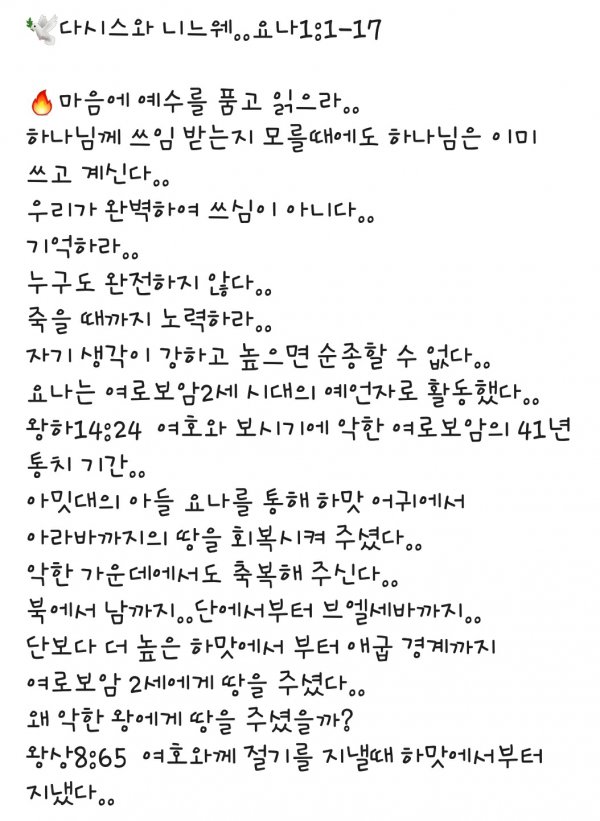 🕊다시스와 니느웨。。요나1:1-17
🔥마음에 예수를 품고 읽으라。。
하나님께 쓰임 받는지 모를때에도 하나님은 이미
쓰고 계신다。。
우리가 완벽하여 쓰심이 아니다。。
기억하라。。
누구도 완전하지 않다。。
죽을 때까지 노력하라。。
자기 생각이 강하고 높으면 순종할 수 없다。。
요나는 여로보암2세 시대의 예언자로 활동했다。。
왕하14:24 여호와 보시기에 악한 여로보암의 41년
통치 기간。。
아밋대의 아들 요나를 통해 하맛 어귀에서
아라바까지의 땅을 회복시켜 주셨다。。
악한 가운데에서도 축복해 주신다。。
북에서 남까지。。단에서부터 브엘세바까지。。
단보다 더 높은 하맛에서 부터 애굽 경계까지
여로보암 2세에게 땅을 주셨다。。
왜 악한 왕에게 땅을 주셨을까?
왕상8:65 여호와께 절기를 지낼때 하맛에서부터
지냈다。。